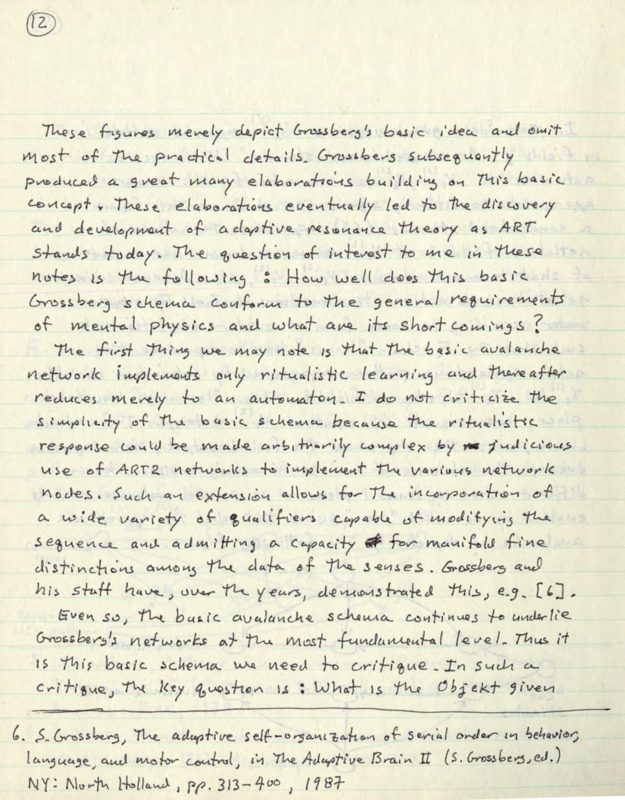 12
These figures merely depict Grossberg's basic idea and omit
most of the practical details. Grossberg subsequently
produced a great many elaborations building on this basic
concept. These elaborations eventually led to the discovery
and development of adaptive resonance theory as ART
stands today. The question of interest to me in these
notes is the following: How well does this basic
Grossberg schema conform to the general requirements
of mental physics and what are its shortcomings?
The first thing we may note is that the basic avalanche
network implements only ritualistic learning and thereafter
reduces merely to an automaton. I do not criticize the
simplicity of the basic schema because the ritualistic
response could be made arbitrarily complex by judicious
use of ART2 networks to implement the various network
nodes. Such an extension allows for the incorporation of
a wide variety of qualifiers capable of modifying the
sequence and admitting a capacity for manifold fine
distinctions among the data of the senses. Grossberg and
his staff have, over the years, demonstrated this, e.g. [6].
Even so, the basic avalanche schema continues to underlie
Grossberg's networks at the most fundamental level. Thus it
is this basic schema we need to critique. In such a
critique, the key question is: What is the Objekt given
6. S. Grossberg, The adaptive self-organization of serial order in behavior,
language, and motor control, in The Adaptive Brain II (S. Grossberg, ed.)
NY: North Holland, pp. 313-400, 1987